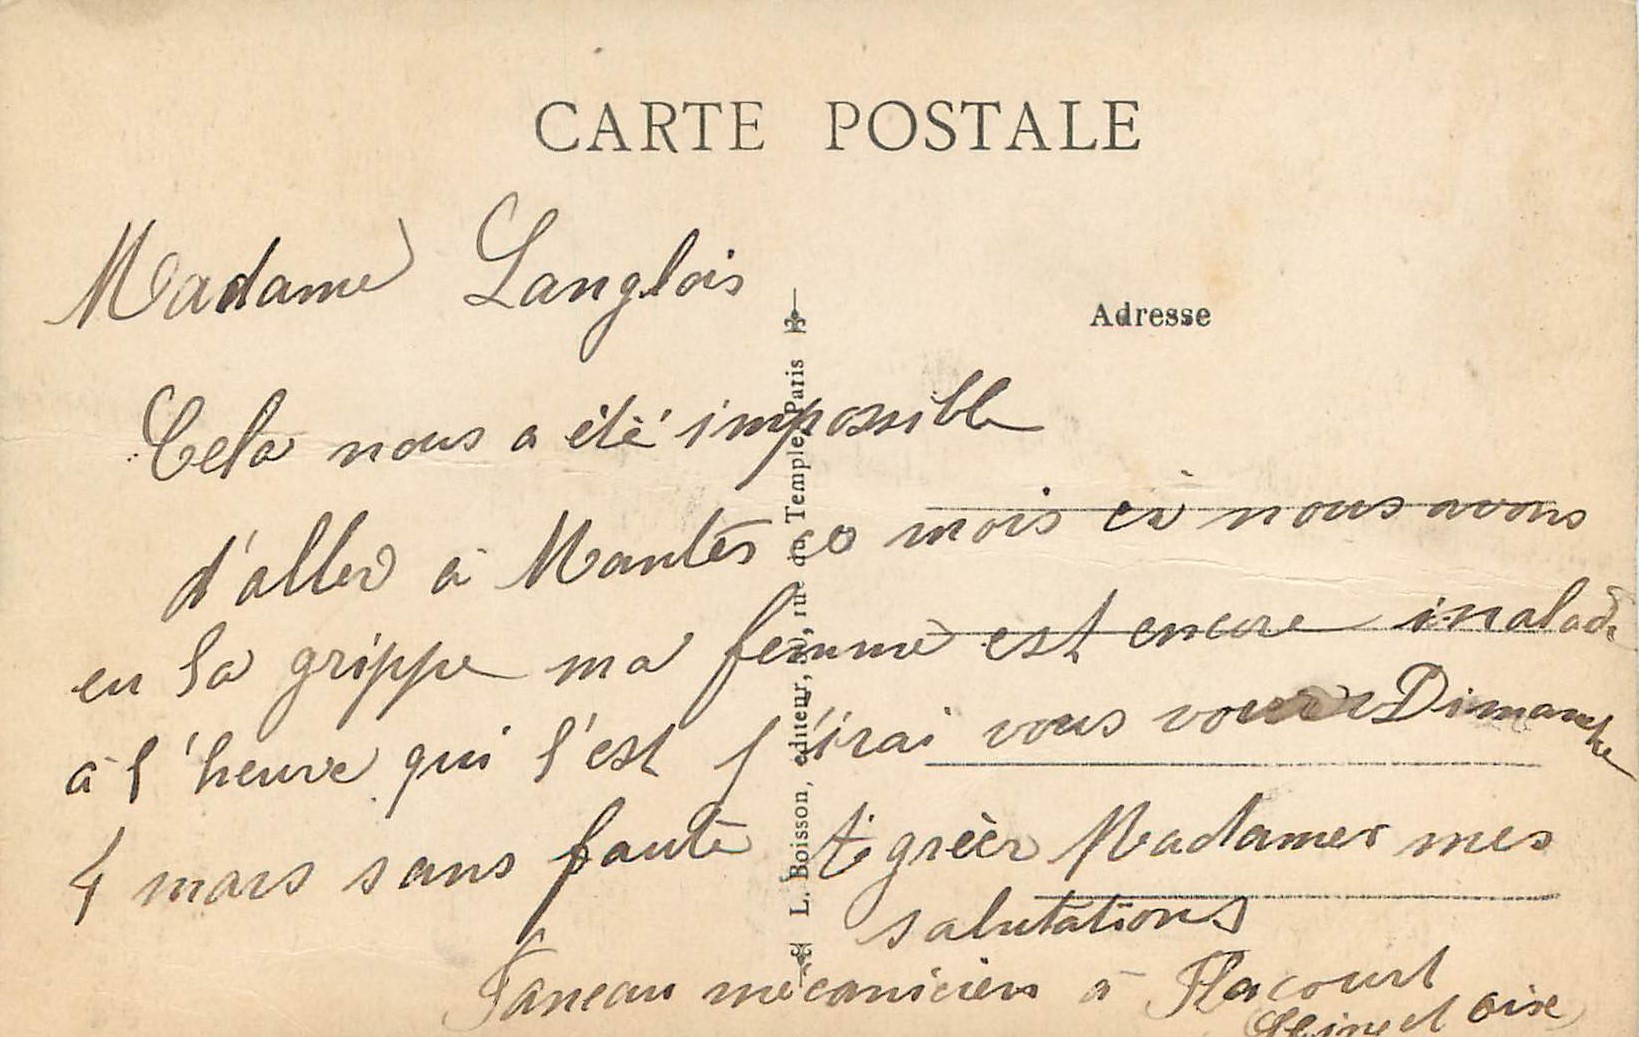 CARTE POSTALE
Madame Langlois
Adresse
Cela nous a été impossible
d'aller à Mantes ce mois ci nous avons
eu la grippe ma femme est encore malade
à l'heure qui l'est j'irai vous voir Dimanche
4 mars sans faute Agréer Madame mes
salutations
mécanicien à Flacourt
Seine et Oise
L. Boisson, editeur, rue du Temple, Paris